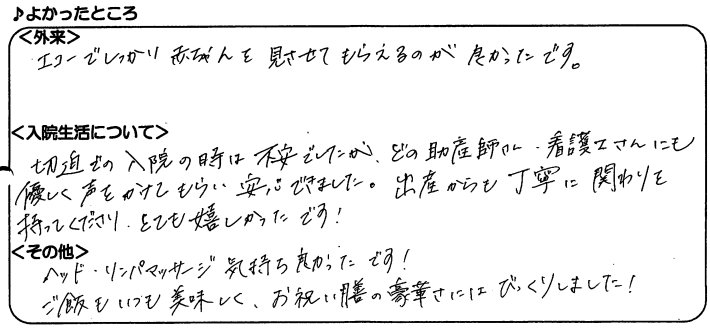 ♪よかったところ
<外来>
・エコーでしっかり赤ちゃんを見させてもらえるのが良かったです。
<入院生活について>
切迫での入院の時は不安でしたが、どの助産師さん・看護士さんにも
優しく声をかけてもらい安心できました。出産からも丁寧に関わりを
持ってくださり、とても嬉しかったです!
<その他>
ヘッド・リンパマッサージ気持ち良かったです!
ご飯もいつも美味しく、お祝い膳の豪華さにはびっくりしました!